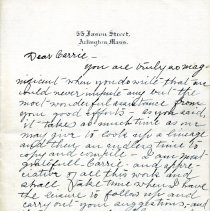 55 Jason Street,
Arlington, Mass.
Dear Carrie—
You are truly so mag-
nificent when you do write—that one
could never impute any but the
most wonderful assistance from
your good efforts— As you said,
it takes so much time as one
may give to look up a lineage
and then an endless time to
copy and compile— I am most
grateful Carrie— and appre-
ciative of all this work and
shall take time when I have
the leisure to follow up and
carry out your suggestions, and